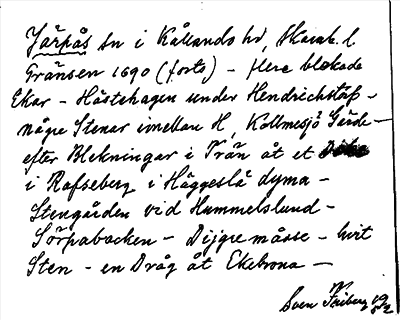 Järpås sn i Kållands hd, Skarab. l
Gränsen 1690 (forts) - flere blekade
Ekar - Hästehagen under Hendrichstorp -
några Stenar imellan H, Kollmesjö Gärde -
efter Blekningar i Trän åt et
i Rafseberg i Häggeslå dyma -
Stengården vid Hummelslund -
Sörpabacken - Dijgre mässe - hvit
Sten - en Dråg åt Ekebrona -
Sven